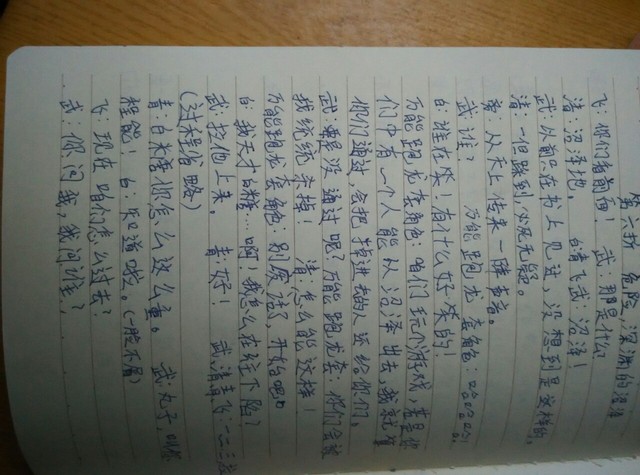 第六折 危险,深渊的沼泽
飞:你们看前面! 武:那是什么
清:沼泽地。 白青飞武:沼泽!
武:以前只在书上见过,没想到是这样的。
清:一但踩到必死无疑。
旁:从天上传来一阵声音。
武:谁? 万能跑龙套角色:哈哈哈哈!
白:谁在笑!有什么好笑的!
万能跑龙套角色:咱们玩个游戏,若是你
们中有一个人能从沼泽出去,我就算
你们通过,会把掉进去的人还给你们。
武:要是没通过呢?万能跑龙套:你们会被
我统统杀掉! 清:怎么能这样!
万能跑龙套角色:别废话,开始吧!
白:我天才白糖…啊!我怎么在往下陷?
武:拉他上来。 青:好! 武清青飞:一二三
(过程省略)
青:白糖你怎么这么重。 武:丸子,叫你
白:知道啦。(一脸不屑)
飞:现在咱们怎么过去?
武:你问我,我问谁?